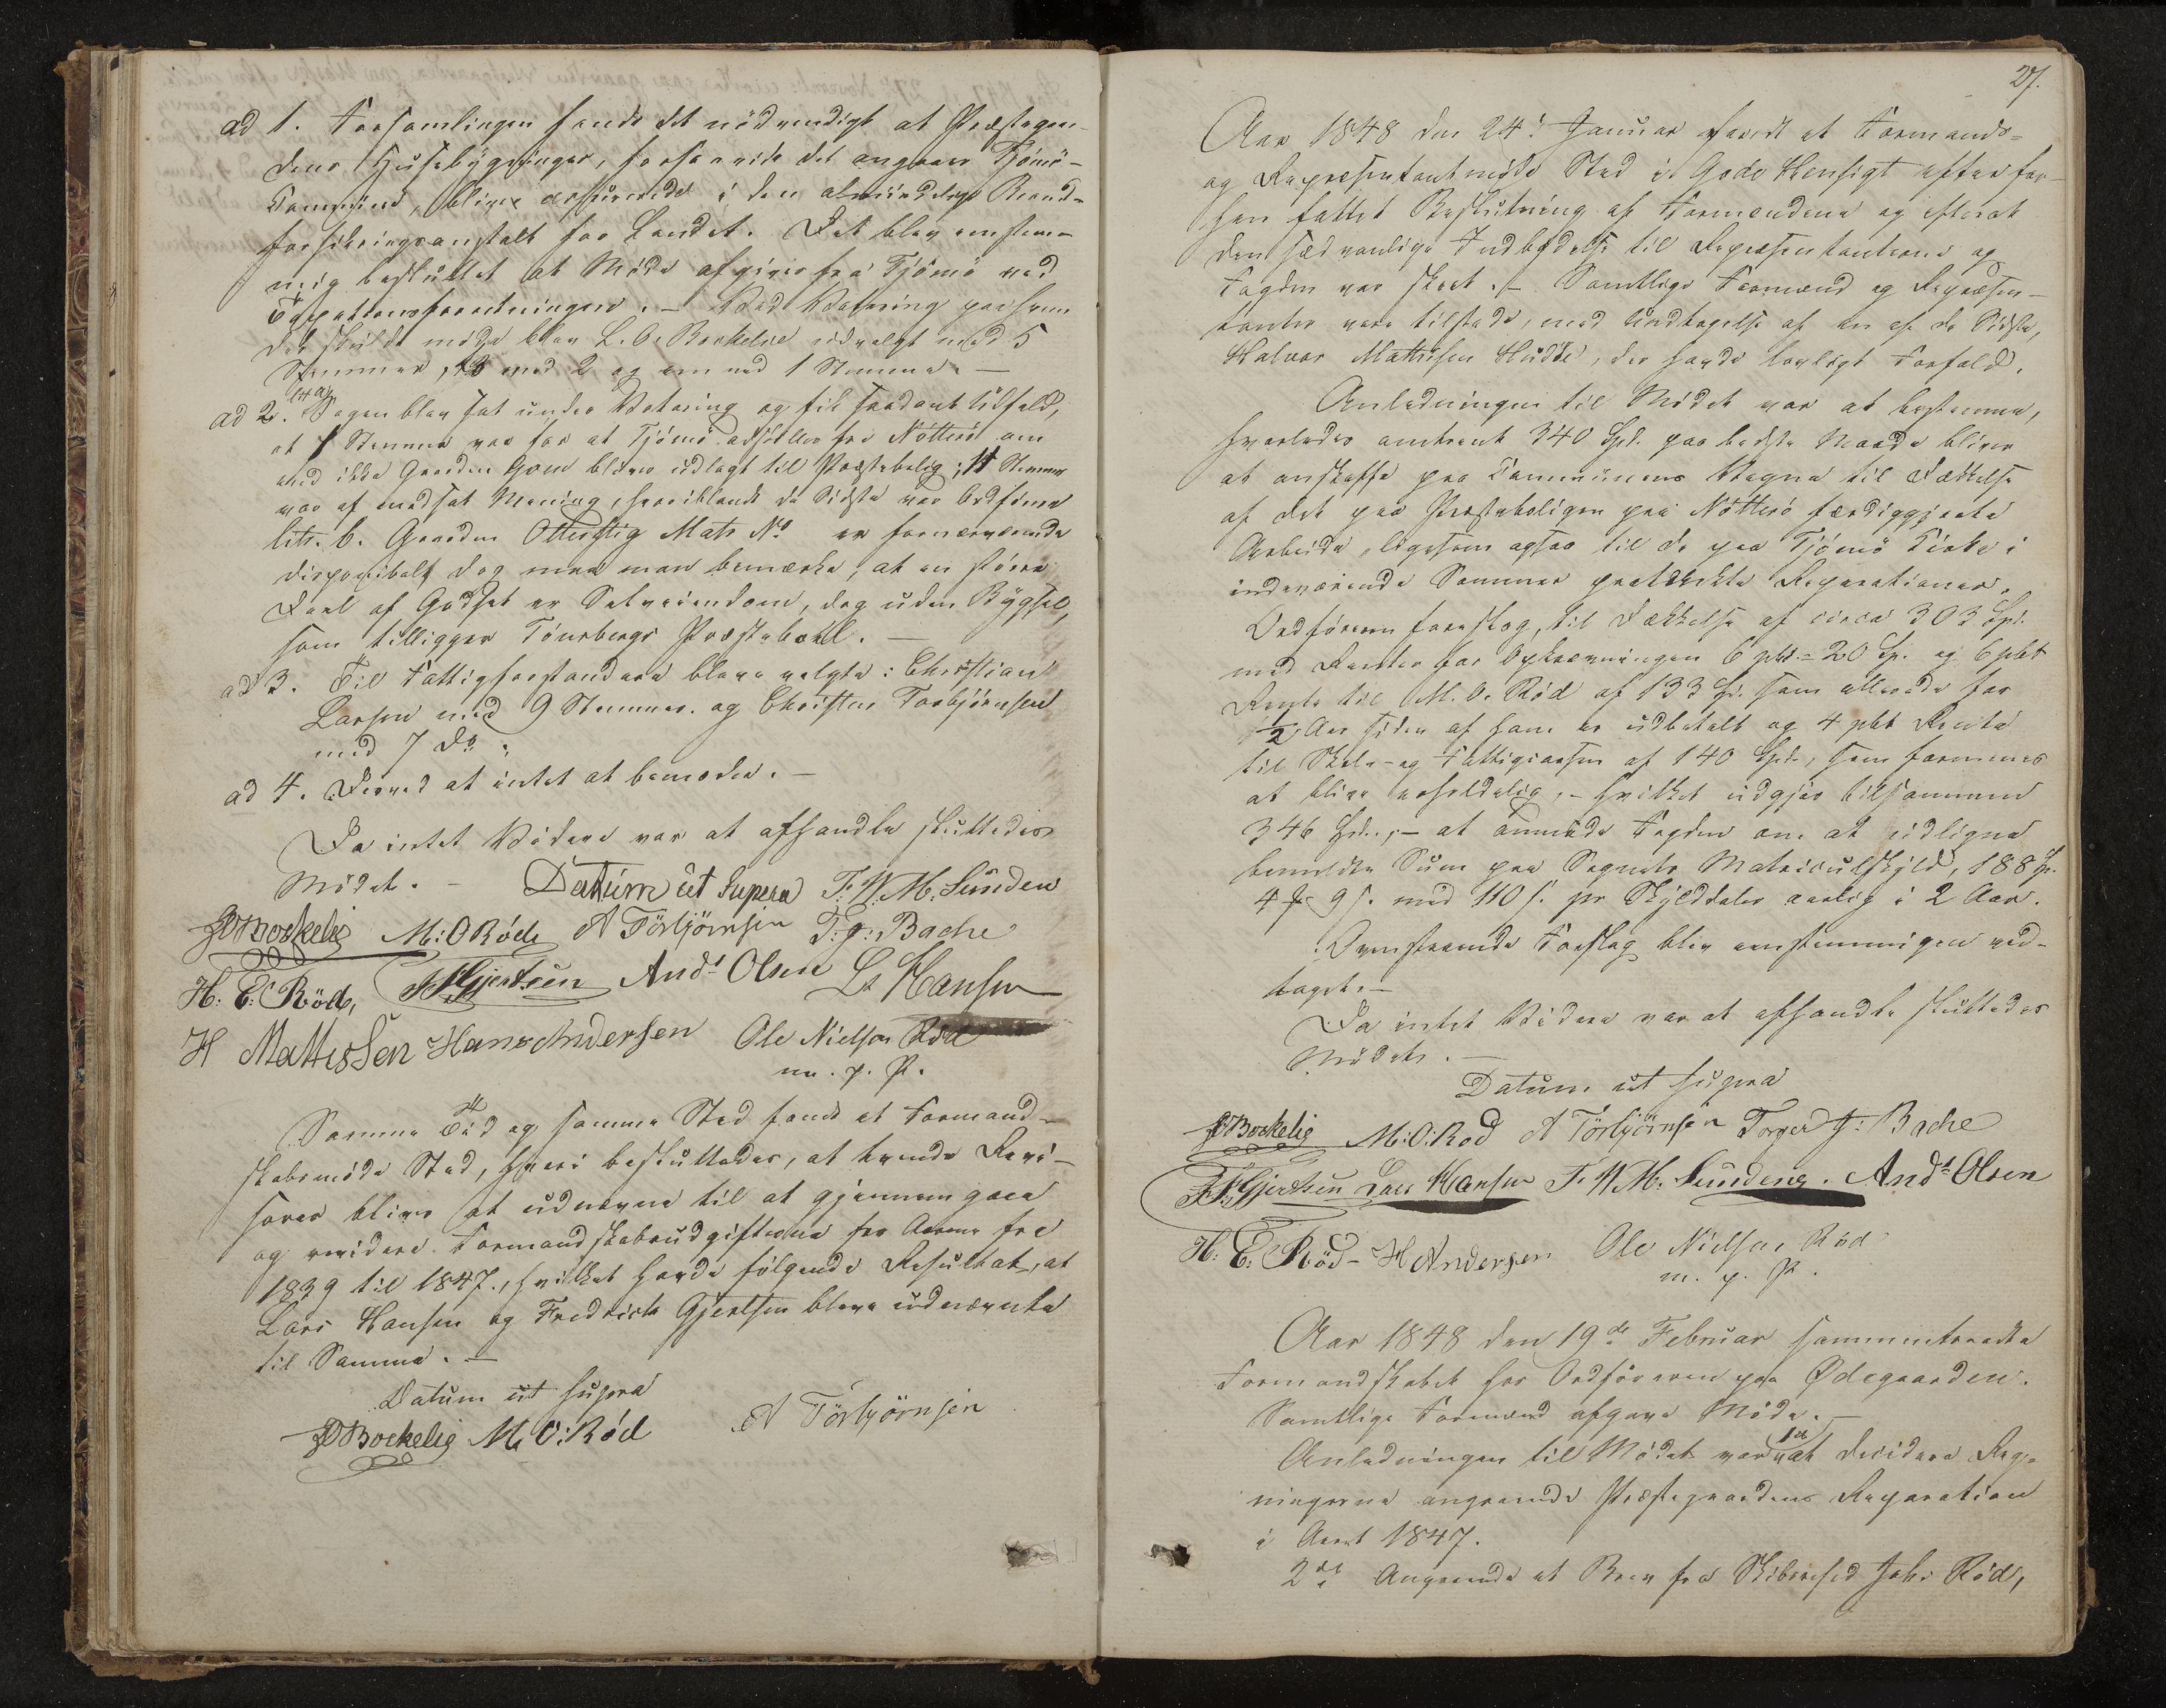 ad 1. Forsamlingen fandt det nödvendigt at Præstegaar-
dens Husebygninger, forsaavidt det angaaer Tjömö-
Commune, bliver assurerede i den almindelige Brand-
forsikringsanstalt for Landet. Det blev enstem-
mig besluttet at Möde afgives fra Tjömö ved
Taxationsforretningen. – Ved Votering paa hvem
der skulde möde blev L. O. Bockelie udvalgt med 5
Stemmer, 3 med 2 og en med 1 Stemme. –
ad 2. Sagen blev sat under Votering og fik saadant Udfald,
at Stemmer var for at Tjömö adskilles fra Nötterö om
end ikke Gaarden Gom bliver udlagt til Præstebolig; 11 Stemmer
var af modsat Mening, hvoriblandt de Sidste var Ordförer
litr. b. Gaarden Ottestig Matr No er fornærværende
disponibelt dog maa man bemærke, at en större
Deel af Godset er Selveiendom, dog uden Bygsel,
som tilligger Tönsbergs Præstebord. –
ad 3. Til Fattigforstandere bleve valgte: Christian
Larsen med 9 Stemmer og Christen Torbjörnsen
med 7 Do.
ad 4. Derved at intet at bemærke. –
Da intet Videre var at afhandle sluttedes
Mödet. – Datum ut Supera F. W. M. Sunden
Bockelie M: O Röde A Törbjörnsen T: J: Bache
H: E: Röd, F F Gjertsen Ands Olsen Ls Hansen
H Mattissen Hans Andersen Ole Nielsen Röd
m. p. P.
Samme Tid og samme Sted fandt et Formand-
skabsmöde Sted, hvori besluttedes, at tvende Revi-
sorer bliver at udnævne til at gjennemgaae
og revidere Formandskabsudgifterne for Aarene fra
1839 til 1847., hvilket havde fölgende Resultat, at
Lars Hansen og Fredrich Gjertsen bleve udnævnte
til Samme. –
Datum ut supra
Bockelie M: O: Röd A Törbjörnsen
27.
Aar 1848 den 24de Januar fandt et Formands-
og Repræsentantmöde Sted i Gode Hensigt efter for-
hen fattet Beslutning af Formændene og efterat
den sædvanlige Indbydelse til Repræsentanterne og
Fogden var skeet. – Samtlige Formænd og Repræsen-
tanter vare tilstede, med Undtagelse af en af de Sidste,
Halvor Mathisen, der havde lovligt Forfald.
Anledningen til Mödet var at bestemme,
hvorledes omtrent 340 Spd. paa bedste Maade bliver
at anskaffe paa Communens Vegne til Dækkelse
af det paa Præsteboligen paa Nötterö færdiggjorte
Arbeide, ligesom ogsaa til de paa Tjömö Kirke i
indeværende Sommer paatænkte Reparationer.
Ordföreren foreslog, til Dækkelse af circa 303 Spd.
med Renter for Opkrævningen 6 pCt = 20 Sp. og 6 pCt
Rente til M. O. Röd af 133 Sp. som allerede for
1/2 Aar siden af ham er udbetalt og 4 pCt Rente
til Skole- og Fattigcassen af 140 Spd., som formenes
at blive erholdelig, – hvilket udgjör tilsammen
346 Spd., – at anmode Fogden om at udligne
bemeldte Sum paa Sognets Matriculskyld, 188 Sp.
4 9 s. med 110 s. pr Skylddaler aarlig i 2 Aar.
Ovenstaaende Forslag blev enstemmigen ved-
taget. –
Da intet Videre var at afhandle sluttedes
Mödet. –
Datum ut supra
Bockelie M: O: Rod A Törbjörnsen Torger J: Bache
F F Gjertsen Lars Hansen F. W. M. Sundene. Ands Olsen
H: E: Röd- H Andersen Ole Nielsen Röd
m. p. P.
Aar 1848 den 19de Februar sammentraadte
Formandskabet hos Ordföreren paa Ødegaarden.
Samtlige Formænd afgave Möde. –
Anledningen til Mödet var 1st at decidere Reg-
ningerne angaaende Præstegaardens Reparation
i Aaret 1847.
2det Angaaende et Brev fra Skibsrhed Joh: Röd,